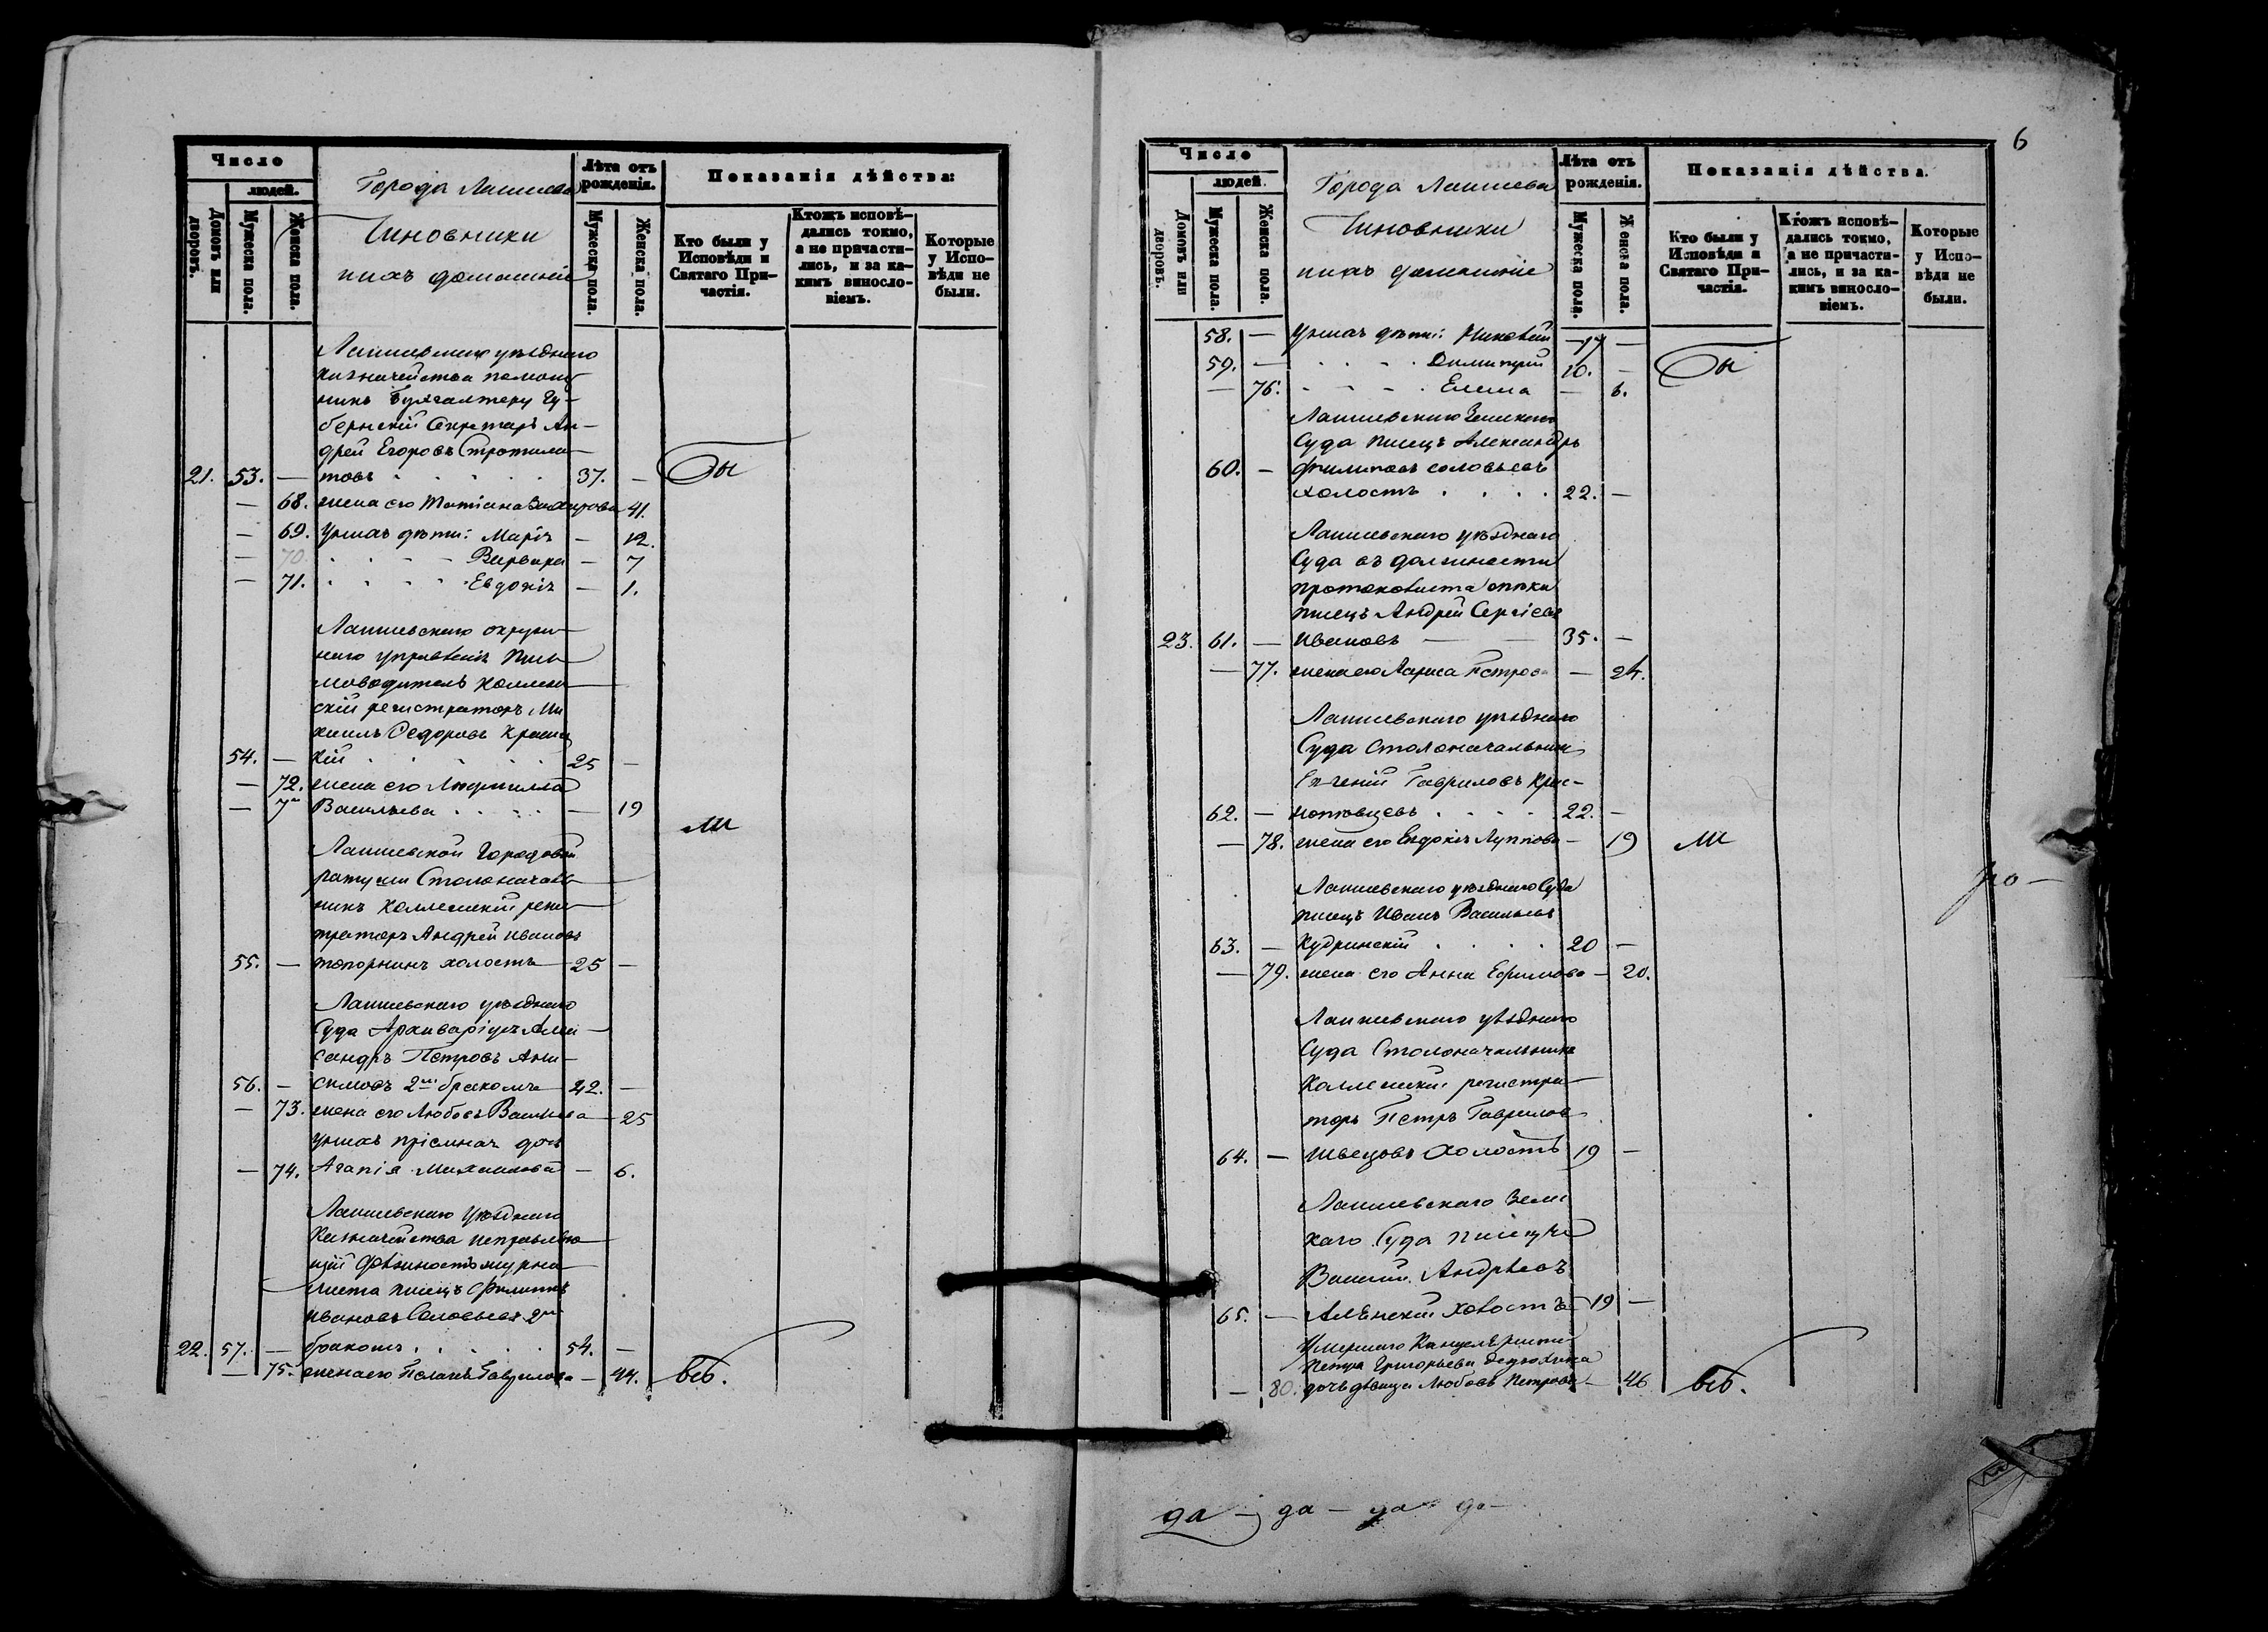 Число
людей.
Домовъ или дворовъ.
Мужеска пола.
Женска пола.
Города Лаишева
Чиновники
и ихъ домашніе
Лѣта отъ рожденія.
Мужеска пола.
Женска пола.
Показанія дѣйства:
Кто были у Исповѣди и Святаго Причастія.
Ктожъ исповѣдались токмо, а не причастились, и за какимъ винословіемъ.
Которые у Исповѣди не были.
Лаишевскаго уѣзднаго
казначейства помощ
никъ Бухгалтера Гу-
бернскій Секретарь Ан-
дрей Егоровъ Стратила-
21. 53. — товъ . . . . . 37. — бы
— 68. жена его Татіана Захарова 41.
— 69. У нихъ дѣти: Марія — 12.
— 70. . . . — Варвара — 7
— 71. . . . . Евдокія — 1.
Лаишевскаго окруж
наго управленія Пись
моводитель Коллеж
скій регистраторъ Ми
хаилъ Федоровъ
54. — кій . . . . . 25 —
— 72. жена его Людмилла
— Васильева . . . . — 19
ли
Лаишевской Городовой
ратуши Столоначаль
никъ Коллежскій реги
страторъ Андрей Ивановъ
55. — Топорнинъ холостъ 25 —
Лаишевскаго уѣзднаго
Суда Архиваріусъ Алек
сандръ Петровъ Ани-
56. — симовъ 2мъ бракомъ 42. —
— 73. жена его Любовь Васильева 25
У нихъ пріемная дочь
— 74. Агапія Михаилова — 6.
Лаишевскаго Уѣзднаго
Казначейства исправляю
щій должность журна
листа писецъ Филиппъ
Ивановъ Соловьевъ 2мъ
22. 57. — бракомъ . . . . . 54. —
— 75. жена его Гаврилова — 44. всѣ.
6
Число
людей.
Домовъ или дворовъ.
Мужеска пола.
Женска пола.
Города Лаишева
Чиновники
и ихъ домашніе
Лѣта отъ рожденія.
Мужеска пола.
Женска пола.
Показанія дѣйства.
Кто были у Исповѣди и Святаго Причастія.
Ктожъ исповѣдались токмо, а не причастились, и за какимъ винословіемъ.
Которые у Исповѣди не были.
58. — У нихъ дѣти: Николай — 17 —
59. — . . . . Димитрій 10. — бы
— 76. - - - . Елена — 6.
Лаишевскаго Земскаго
Суда писецъ Александръ
60. — Филиповъ Соловьевъ
холостъ . . . . 22. —
Лаишевскаго уѣзднаго
Суда въ должности
протоколиста опеки
писецъ Андрей Сергіевъ
23. 61. — Ивановъ — — 35. —
— 77. жена его Лариса Петрова — 24.
Лаишевскаго уѣзднаго
Суда Столоначальникъ
Евгеній Гавриловъ
62. — . . . . 22. —
— 78. жена его Евдокія Луппова — 19 ли
Лаишевскаго уѣзднаго Суда
писецъ Иванъ Васильевъ
63. — Кудринскій . . . . 20 —
— 79. жена его Анна Ефимова — 20.
Лаишевскаго уѣзднаго
Суда Столоначальникъ
Коллежскій регистра-
торъ Петръ Гавриловъ
64. — Швецовъ Холостъ 19 —
Лаишевскаго Зем
скаго Суда писецъ
Василій Андреевъ
65. — Аленскій холостъ 19 —
Умершаго Канцеляриста
Петра Григорьева
— 80. дочь дѣвица Любовь Петрова — 46 всѣ.
да — да — да — да —